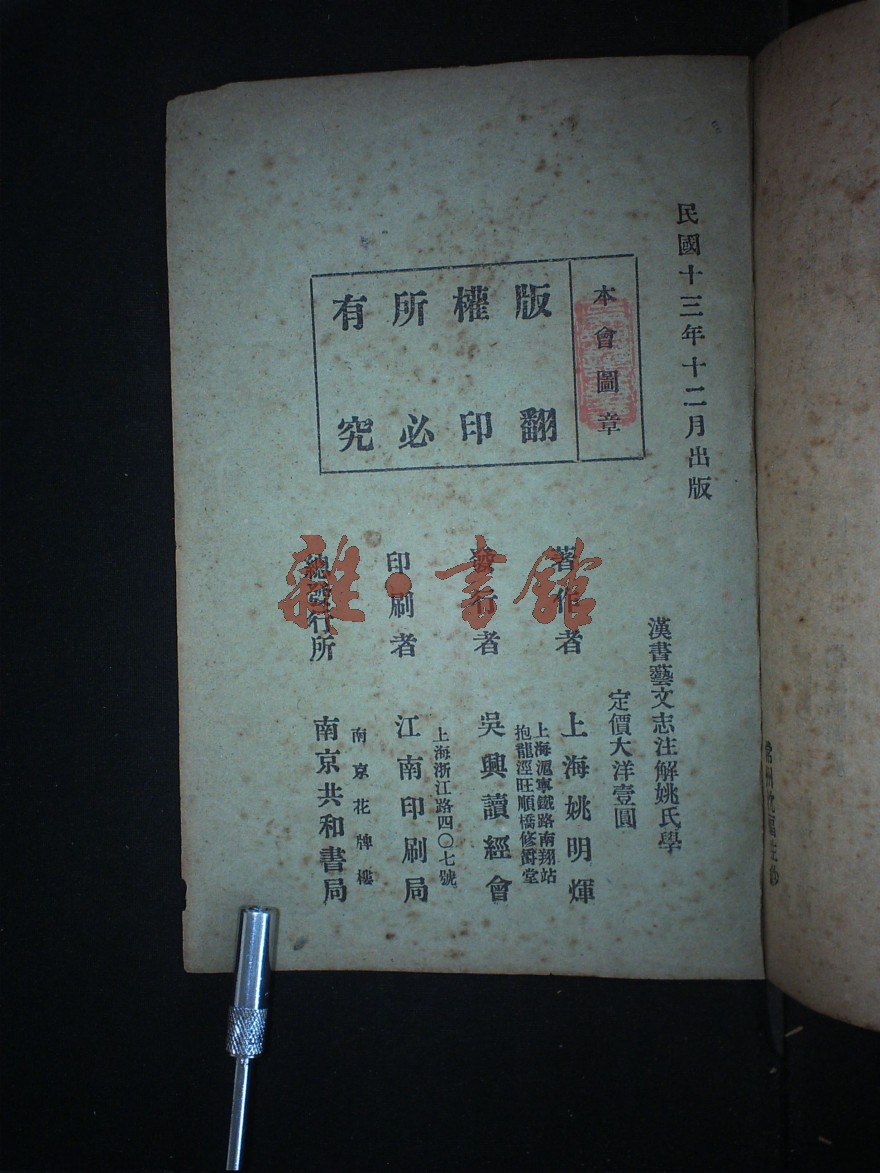 民國十三年十二月出版
本會圖章
版權所有
翻印必究
漢書藝文志注解姚氏學
定價大洋壹圓
著作者
上海姚明煇
上海滬寧鐵路南翔站
抱龍涇旺順橋修爵堂
發行者
吳興讀經會
上海浙江路四〇七號
印刷者
江南印刷局
南京花牌樓
總發行所
南京共和書局
雜·書館